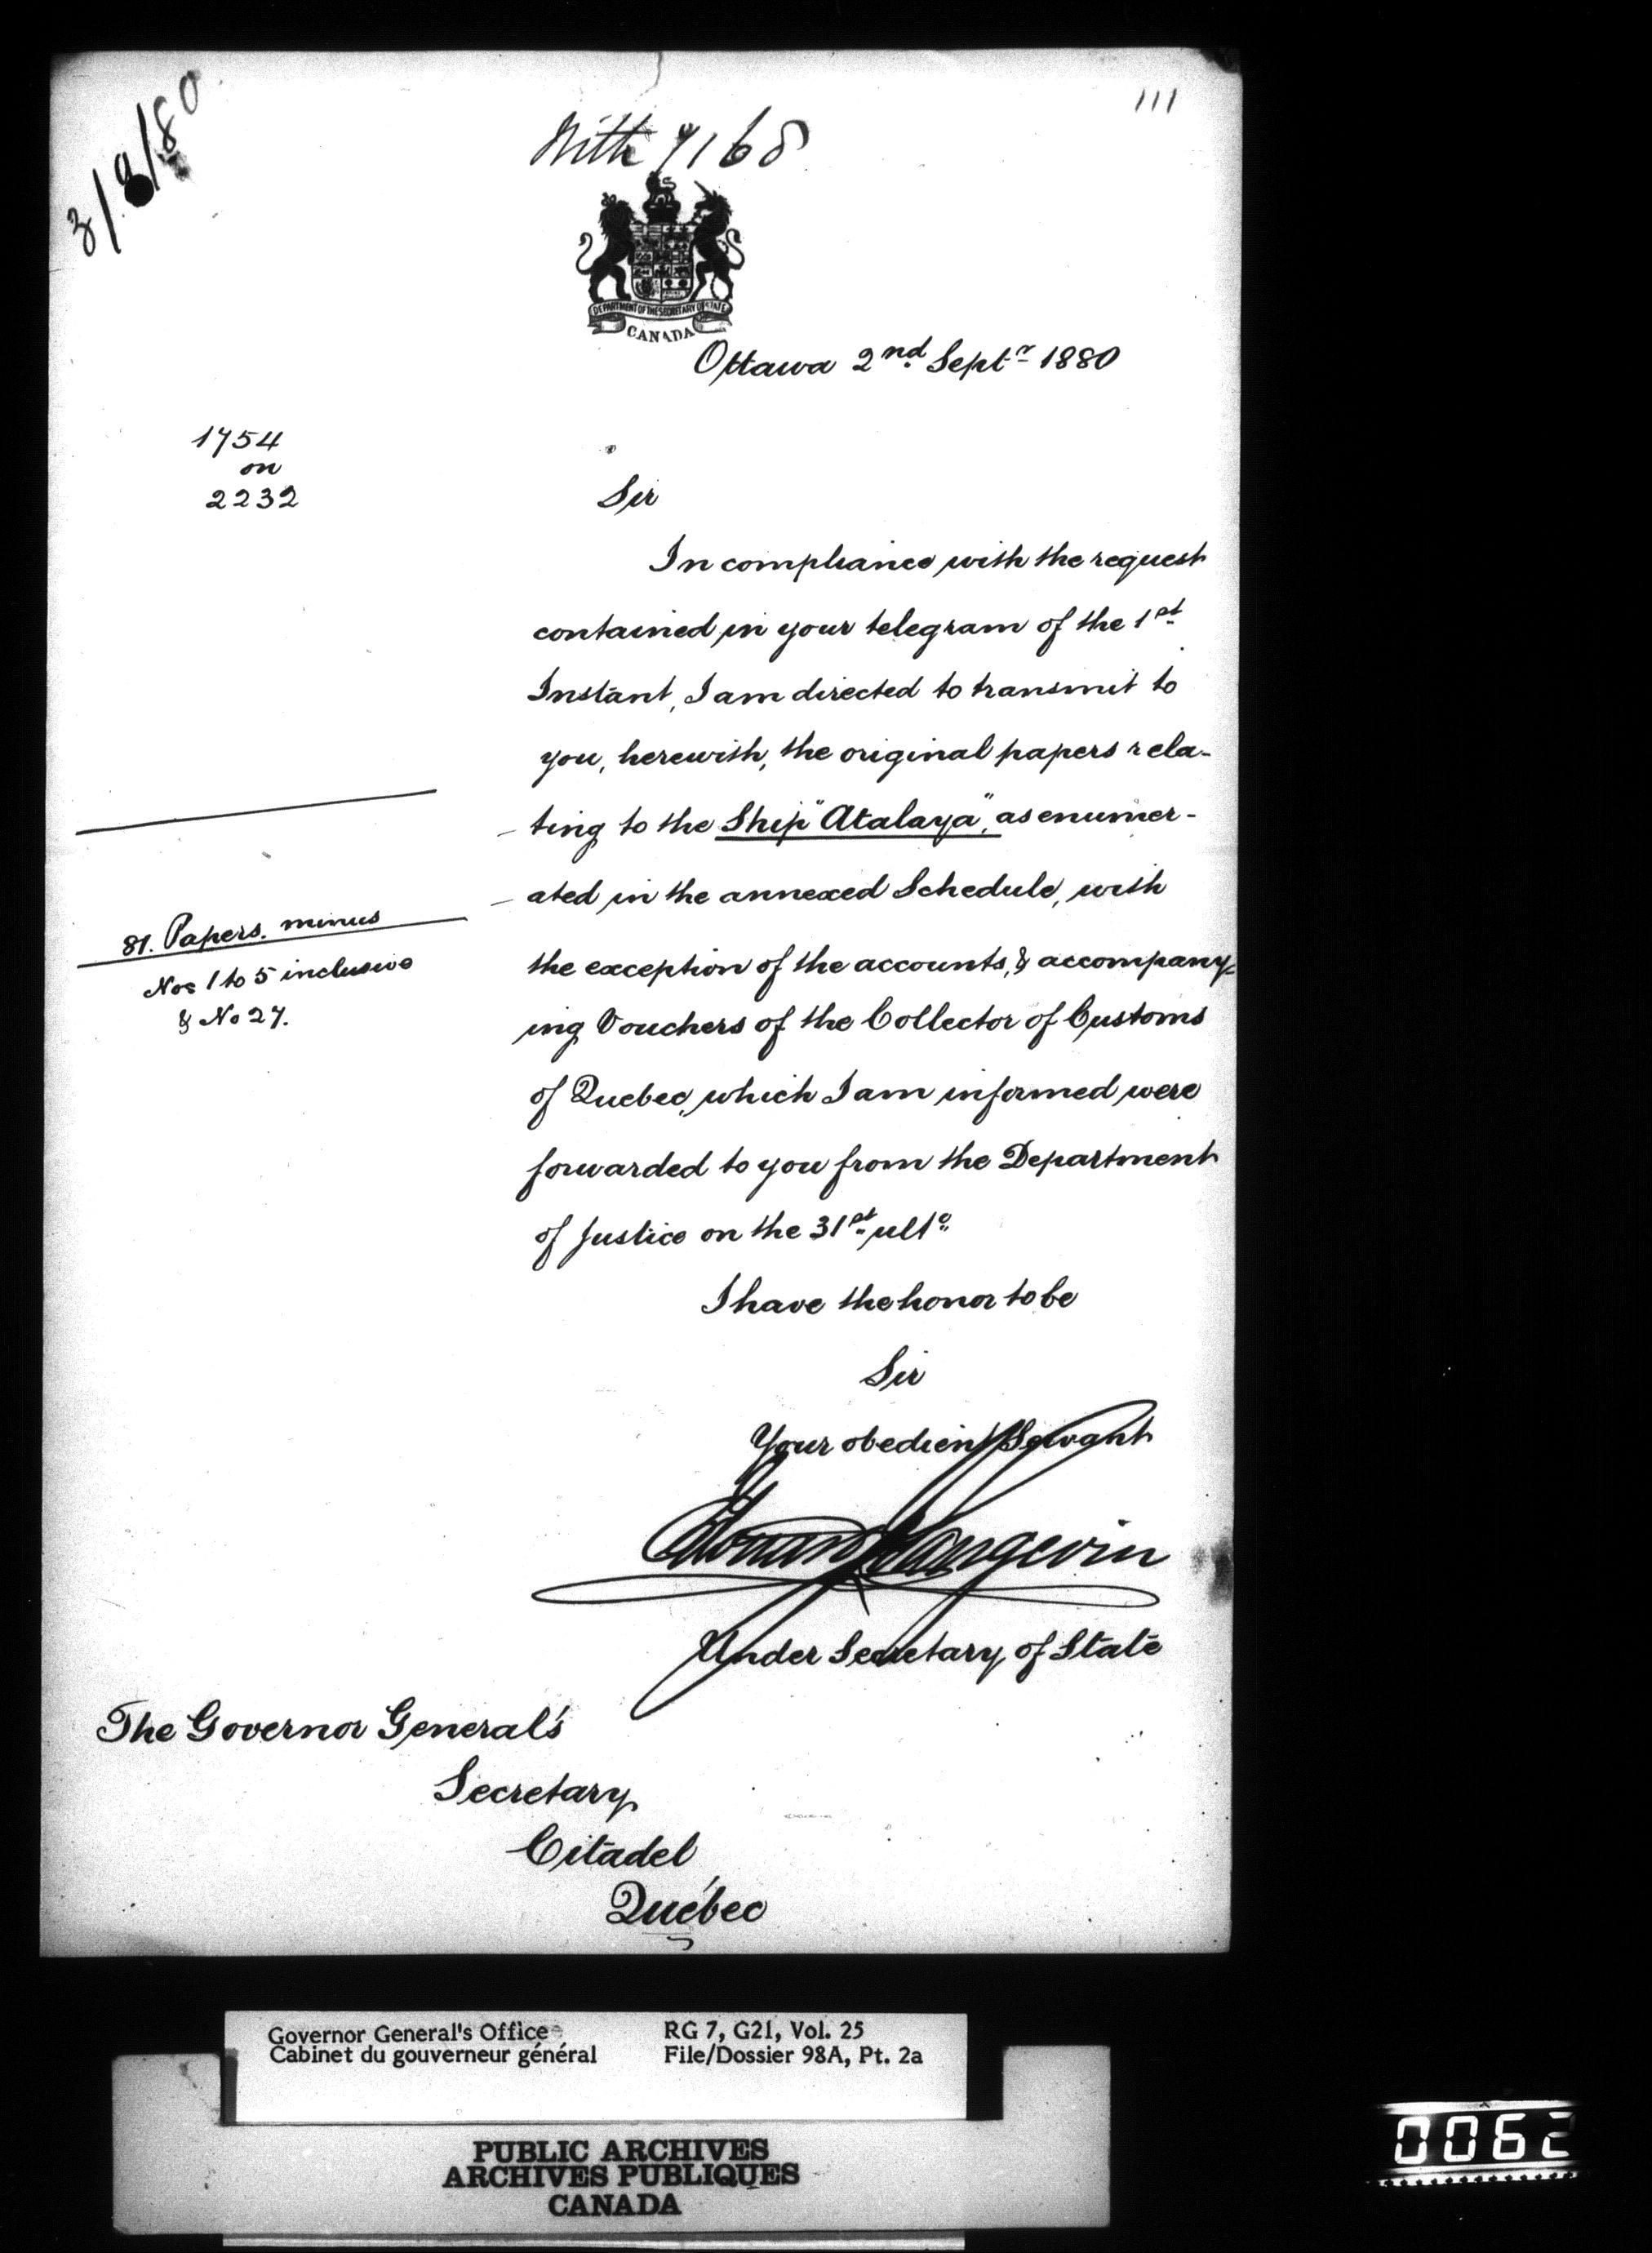 111
3/9/80
With 9168
DEPARTMENT OF THE SECRETARY OF STATE
CANADA
Ottawa 2nd. Septr 1880
1754
on
2232
Sir
In compliance with the request
contained in your telegram of the 1st
Instant, I am directed to transmit to
you, herewith, the original papers rela-
-ting to the Ship "Atalaya", as enumer-
-ated in the annexed Schedule, with
the exception of the accounts, & accompany-
ing Vouchers of the Collector of Customs
of Quebec, which I am informed were
forwarded to you from the Department
of Justice on the 31st ulto
81. Papers. minus
Nos 1 to 5 inclusive
& No 27.
I have the honor to be
Sir
Your obedient Servant
Edouard Langevin
Under Secretary of State
The Governor General's
Secretary
Citadel
Québec
Governor General's Office
Cabinet du gouverneur général
RG 7, G21, Vol. 25
File/Dossier 98A, Pt. 2a
PUBLIC ARCHIVES
ARCHIVES PUBLIQUES
CANADA
0062